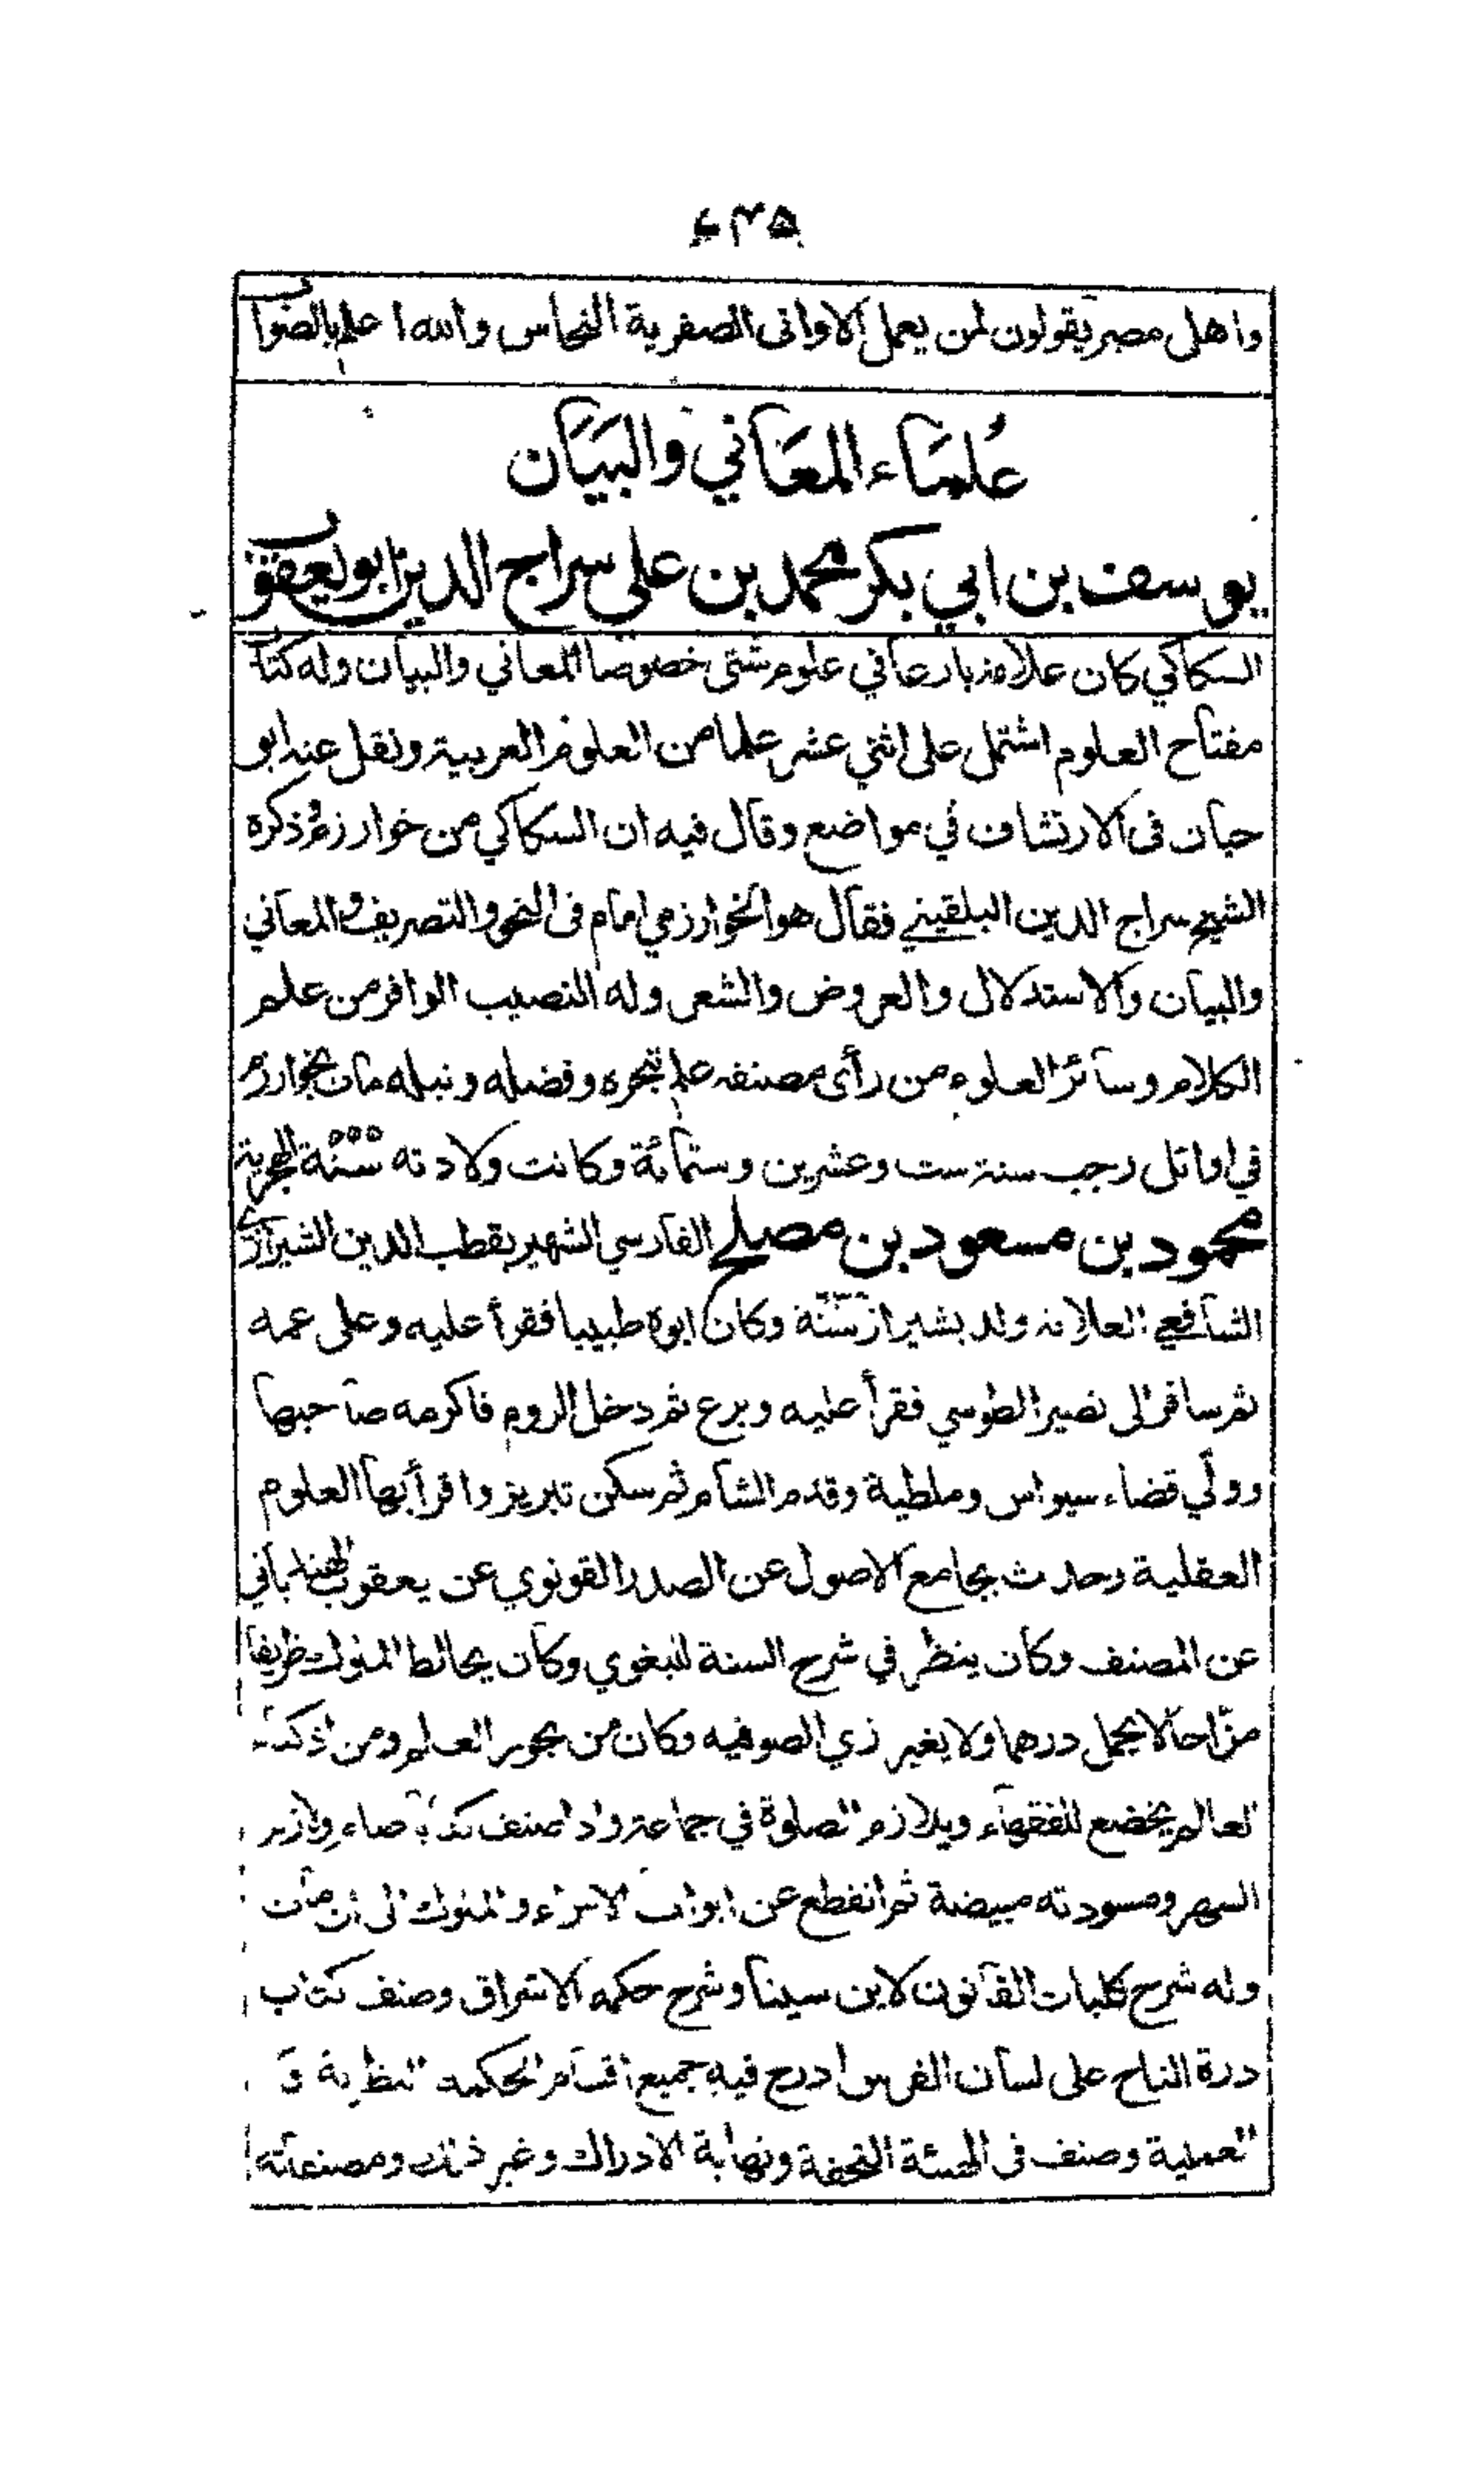 واهل مصر يقولون لمن يعمل الاوانى الصفرية النحاس والله اعلم بالصواب
علماء المعاني والبيان
يوسف بن ابي بكر محمد بن على سراج الدين ابو يعقوب
السكاكي كان علامة بارعا في علوم شتى خصوصا المعاني والبيان وله كتاب
مفتاح العلوم اشتمل على اثنى عشر علما من العلوم العربية ونقل عنه ابو
حيان فى الارتشاف في مواضع وقال فيه ان السكاكي من خوارزم وذكره
الشيخ سراج الدين البلقيني فقال هو الخوارزمي امام فى النحو والتصريف والمعاني
والبيان والاستدلال والعروض والشعر وله النصيب الوافر من علم
الكلام وسائر العلوم من رأى مصنفه علم تبحره وفضله ونبله مات بخوارزم
في اوائل رجب سنة ست وعشرين وستمائة وكانت ولادته سنة ٥٥٥ الهجرية
محمود بن مسعود بن مصلح الفارسي الشهير بقطب الدين الشيرازي
الشافعي العلامة ولد بشيراز سنة وكان ابوه طبيبا فقرأ عليه وعلى عمه
ثم سافر الى نصير الطوسي فقرأ عليه وبرع ثم دخل الروم فاكرمه صاحبها
وولي قضاء سيواس وملطية وقدم الشام ثم سكن تبريز واقرأ بها العلوم
العقلية وحدث بجامع الاصول عن الصدر القونوي عن يعقوب الهذباني
عن المصنف وكان ينظر في شرح السنة للبغوي وكان يخالط الملوك ظريفا
مزاحا لا يحمل درهما ولا يغير زي الصوفيه وكان من بحور العلم ومن اذكياء
العالم يخضع للفقهاء ويلازم الصلوة في جماعة واذا صنف كتابا صام ولازم
السهر ومسودته مبيضة ثم انقطع عن ابواب الامراء والملوك الى ان مات
وله شرح كليات القانون لابن سينا وشرح حكمه الاشراق وصنف كتاب
درة التاج على لسان الفرس ادرج فيه جميع اقسام الحكمه النظرية و
العملية وصنف فى الهيئة التحفة ونهاية الادراك وغير ذلك ومصنفاته